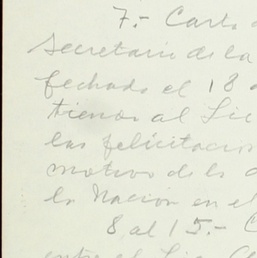 7.- Carta
Secretario de la
fechada el 18
tienas al Lic
las felicitacion
motivo de la
la Nación en el
8 al 15.-
entre el Lic.